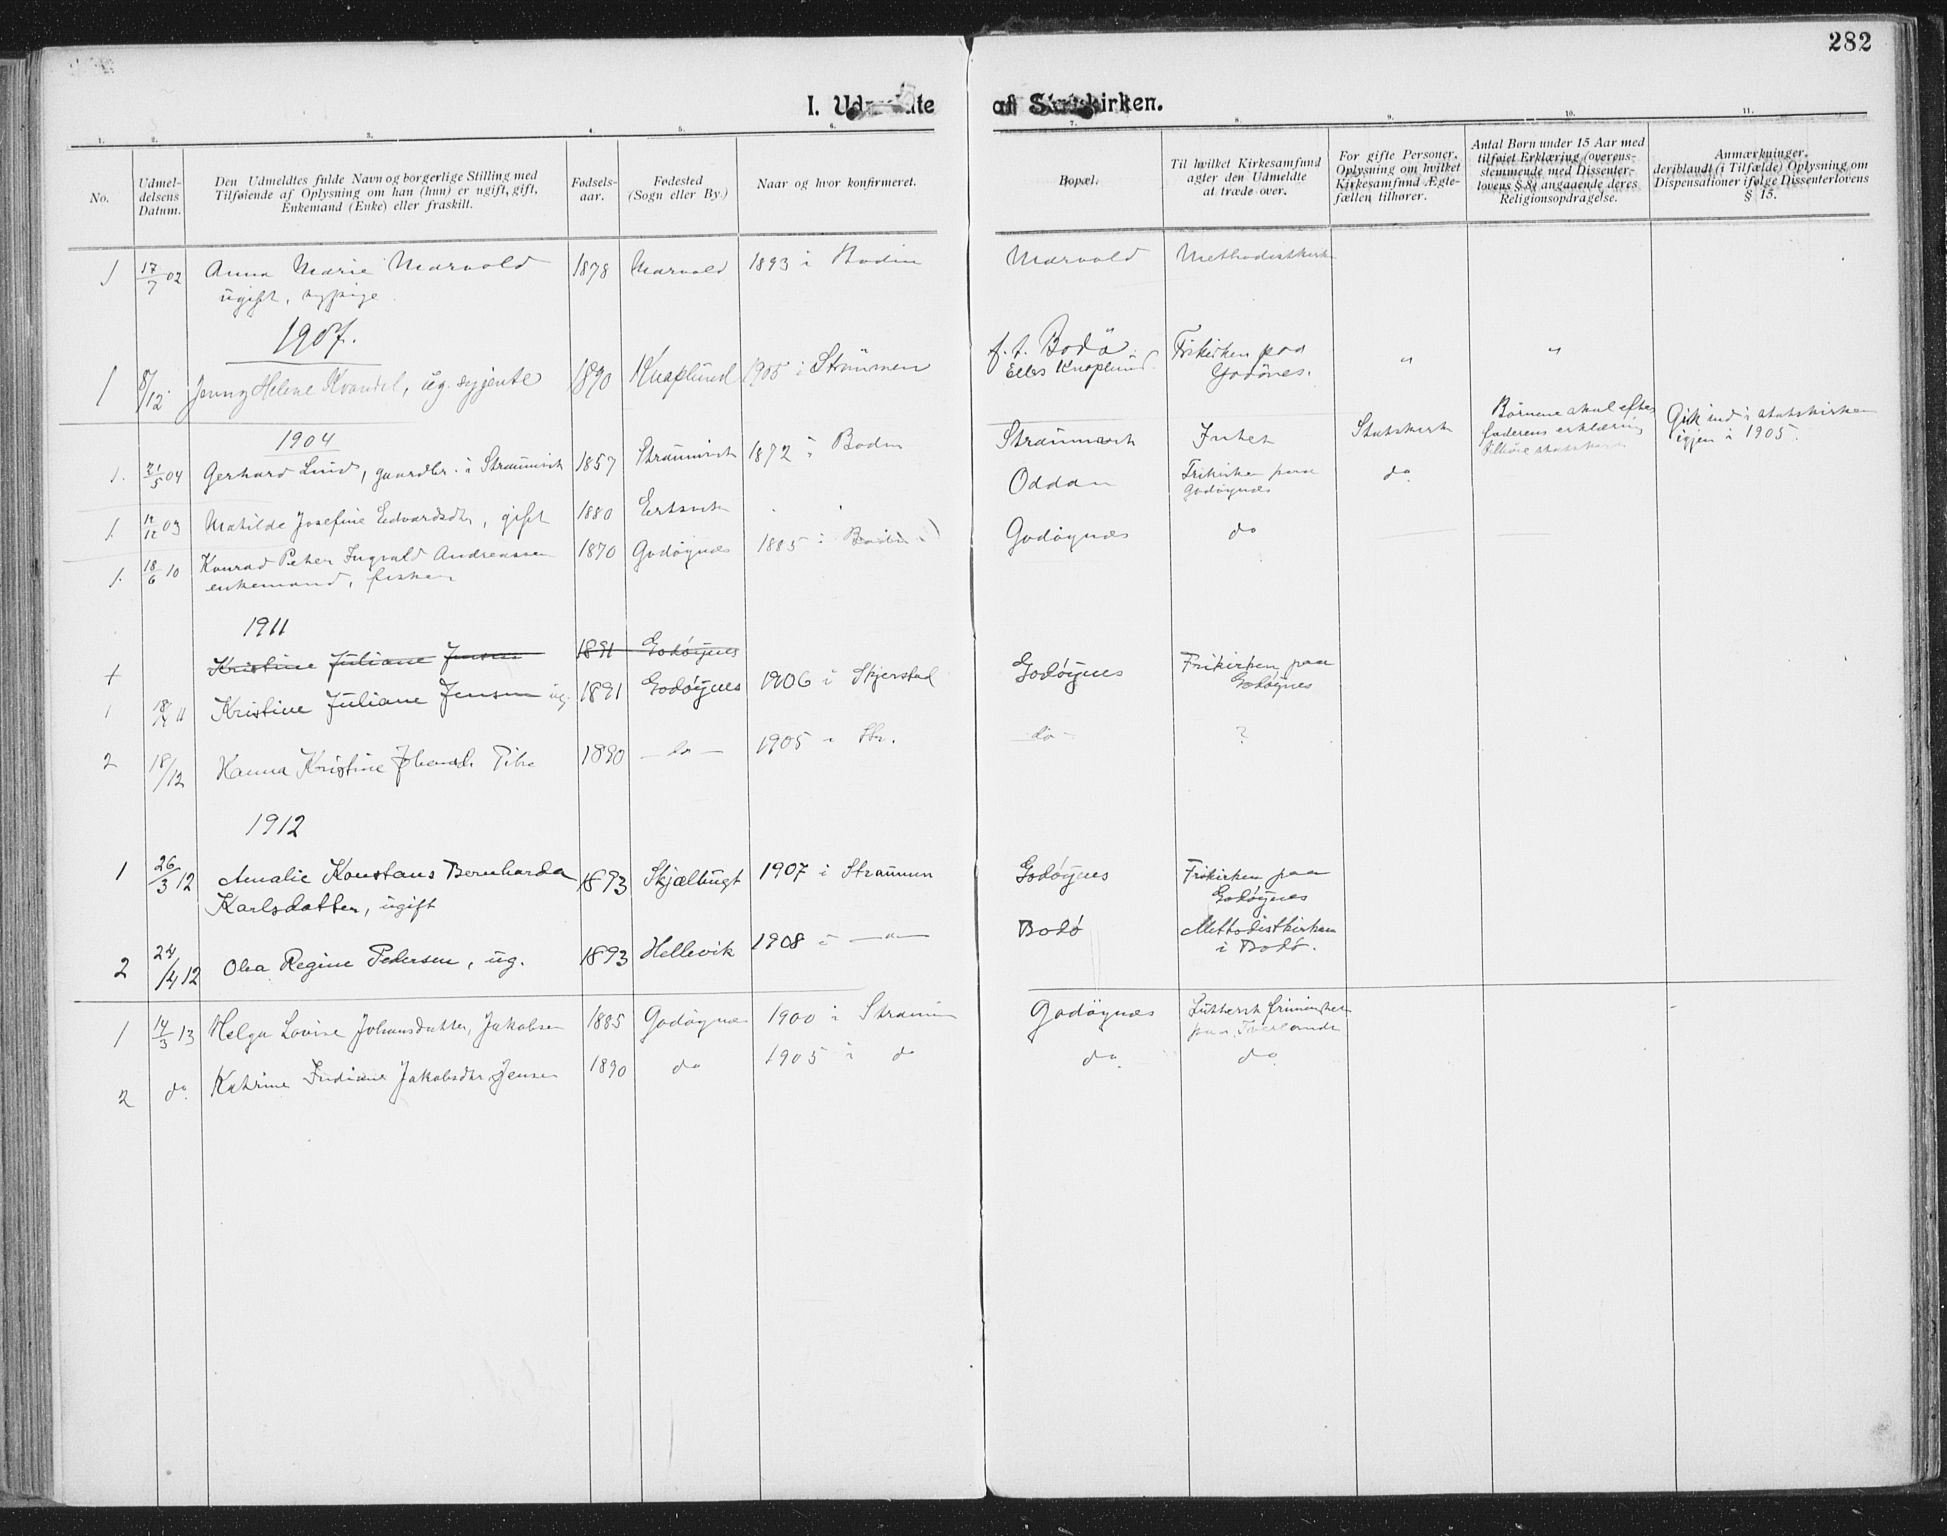 282
I. Udmeldte af Statskirken.
1. 2. 3. 4. 5. 6. 7. 8. 9. 10. 11.
No.
Udmel-
delsens
Datum.
Den Udmeldtes fulde Navn og borgerlige Stilling med
Tilføiende af Oplysning om han (hun) er ugift, gift,
Enkemand (Enke) eller fraskilt.
Fødsels-
aar.
Fødested
(Sogn eller By.)
Naar og hvor konfirmeret.
Bopæl.
Til hvilket Kirkesamfund
agter den Udmeldte
at træde over.
For gifte Personer.
Oplysning om hvilket
Kirkesamfund Ægte-
fællen tilhører.
Antal Børn under 15 Aar med
tilføiet Erklæring (overens-
stemmende med Dissenter-
lovens § 8) angaaende deres
Religionsopdragelse.
Anmærkninger,
deriblandt (i Tilfælde) Oplysning om
Dispensationer ifølge Dissenterlovens
§ 15.
1 17/7 02 Anna Marie Marvold 1878 Marvold 1893 i Bodin Marvold Methodistkirk
ugift, sypige
1907.
1 8/12 Jenny Helene Kvandal, ug. syjente 1890 Knaplund 1905 i Strømmen f. t. Bodø Frikirken paa " "
Elles Knaplund. Godønes.
1904
1. 21/5 04 Gerhard Lund, gaardbr. i Straumvik 1857 Straumvik 1872 i Bodin Straumvik Intet Statskirk Børnene skal efter Gik ind i statskirken
faderens erklæring igjen i 1905.
tilhøre statskirk
1. 12/12 03 Matilde Josefine Edvardsdtr, gift 1880 Eertsvik Oddan Frikirken paa do
Godøynes
1. 18/6 10 Konrad Peter Ingvald Andreassen 1870 Godøynes 1885 i Bodin Godøynes do
enkemand, fisker
1911
+ Kristine Juliane Jensen 1891 Godøynes
1 18/ 11 Kristine Juliane Jensen ug. 1891 Godøynes 1906 i Skjerstad Godøynes Frikirken paa
Godøynes
2 18/12 Hanna Kristine 1890 — do — 1905 - Str. — do — ?
1912
1 26/3 12 Amalie Konstans Bernharda 1893 Skjælbugt 1907 i Straumen Godøynes Frikirken paa
Karlsdatter, ugift Godøynes
2 24/4 12 Olea Regine Pedersen, ug. 1893 Hellevik 1908 i — " — Bodø Methodistkirken
i Bodø.
1 14/3 13 Helga Lovise Johansdatter, Jakobsen 1885 Godøynes 1900 i Straum Godøynes Luthersk frimenighet
paa Tverlandet
2 do. Katrine Indiane Jakobsdtr Jensen 1890 do 1905 i do do do